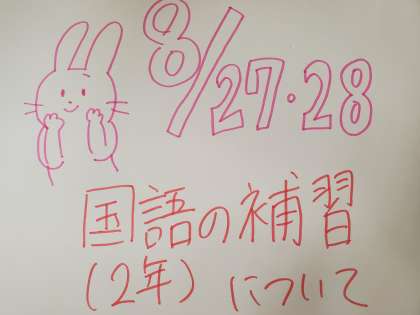 8/27・28
国語の補習
(2年)について